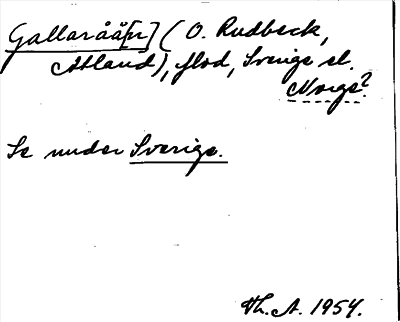 Gallaråå[n] (O. Rudbeck,
Atland), flod, Sverige el.
Norge?
Se under Sverige.
Th. A. 1954.